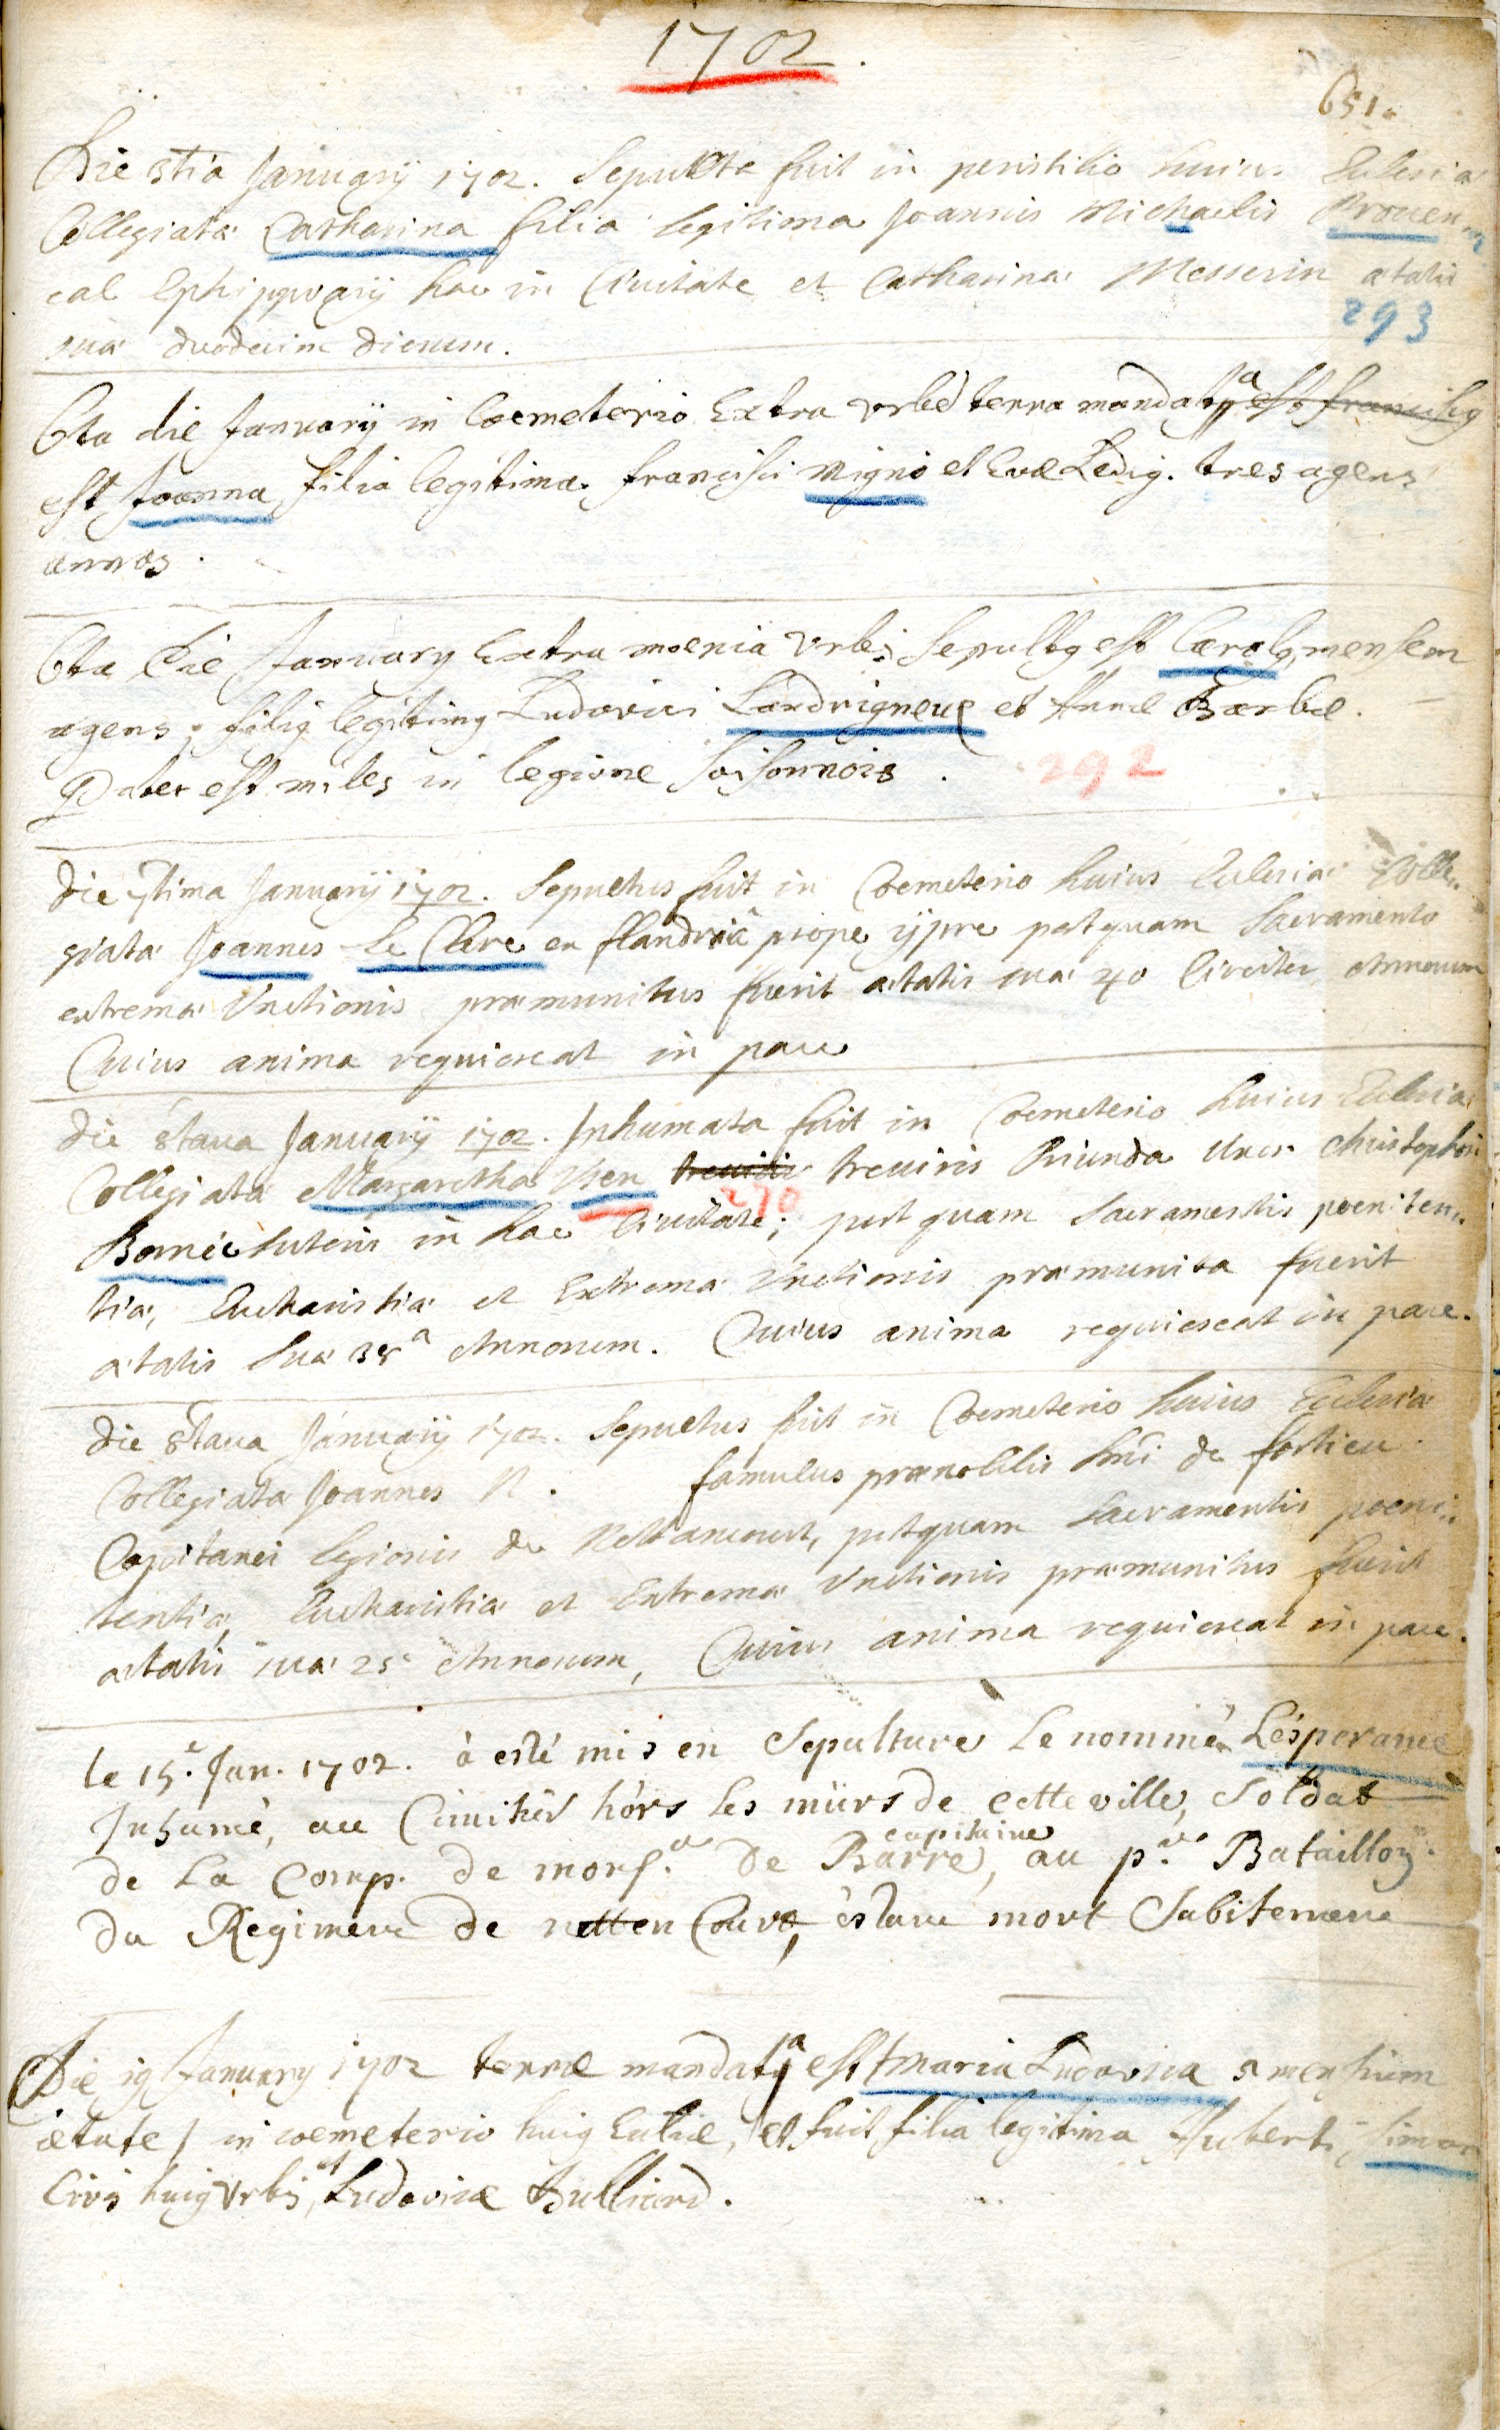 1702.
651.
Die 5tia Januarÿ 1702. Sepulta fuit in peristilio huius Eclesiæ
Collegiatæ Catharina filia legitima Joannis Michaelis Prouen
cal Ephippiarÿ hac in Ciuitate et Catharinæ Messerin ætatis
suæ duodecim dierum.
293
6ta die Januarÿ in Coemeterio Extra urbē terra mandata est francisca
est Joanna filia legitima francisci migno et Evæ Ledig. tres agens
annos.
6ta Die January Extra moenia Urbis Sepultq est Carolq mensem
agens, filiq legitimq Ludovici Lardrigneux et Annæ Barbæ.
Pater est miles in legione Soisonnois.
292
Die 7tima Januarÿ 1702. Sepultus fuit in Coemeterio huius Eclesiæ Colle,,
giatæ Joannes Le Clere en flandriæ prope ÿpre postquam Sacramento
extremæ Unctionis præmunitus fuerit ætatis suæ 40 Circiter Annorum
Cuius anima requiescat in pace
die 8taua Januarÿ 1702. Inhumata fuit in Coemeterio huius Eclesiæ
Collegiatæ Margaretha treuiris Oriunda Uxor Christophori
270
in hac Ciuitate; postquam Sacramentis poeniten,,
tiæ, Eucharistiæ et Extremæ Unctionis præmunita fuerit
ætatis suæ 38a Annorum. Cuius anima requiescat in pace.
die 8taua Januarÿ 1702. Sepultus fuit in Coemeterio huius Ecclesiæ
Collegiatæ Joannes N. famulus prænobilis Dni de fortieu
Capitanei legionis de Nettancourt, postquam Sacramentis poeni,,
tentiæ, Eucharistiæ et Extremæ Unctionis præmunitus fuerit
ætatis suæ 25 Annorum, Cuius anima requiescat in pace.
le 15.e Jan. 1702. à esté mis en Sepulture Le nommé Lésperance
Inhumé, au Cimitier hórs les mürs de cette ville, Soldat
de La Comp. de monsr. De Barre, capitaine au pr. Bataillon
du Regiment de netten Court, éstant mort Subitement
Die 19 January 1702 terræ mandata est Maria Ludovica 5 mensium
ætate / in coemeterio huiq Ecliæ, et fuit filia legitima Huberti Simon
Civis huiq Urbis, et Ludovicæ Bulliard.